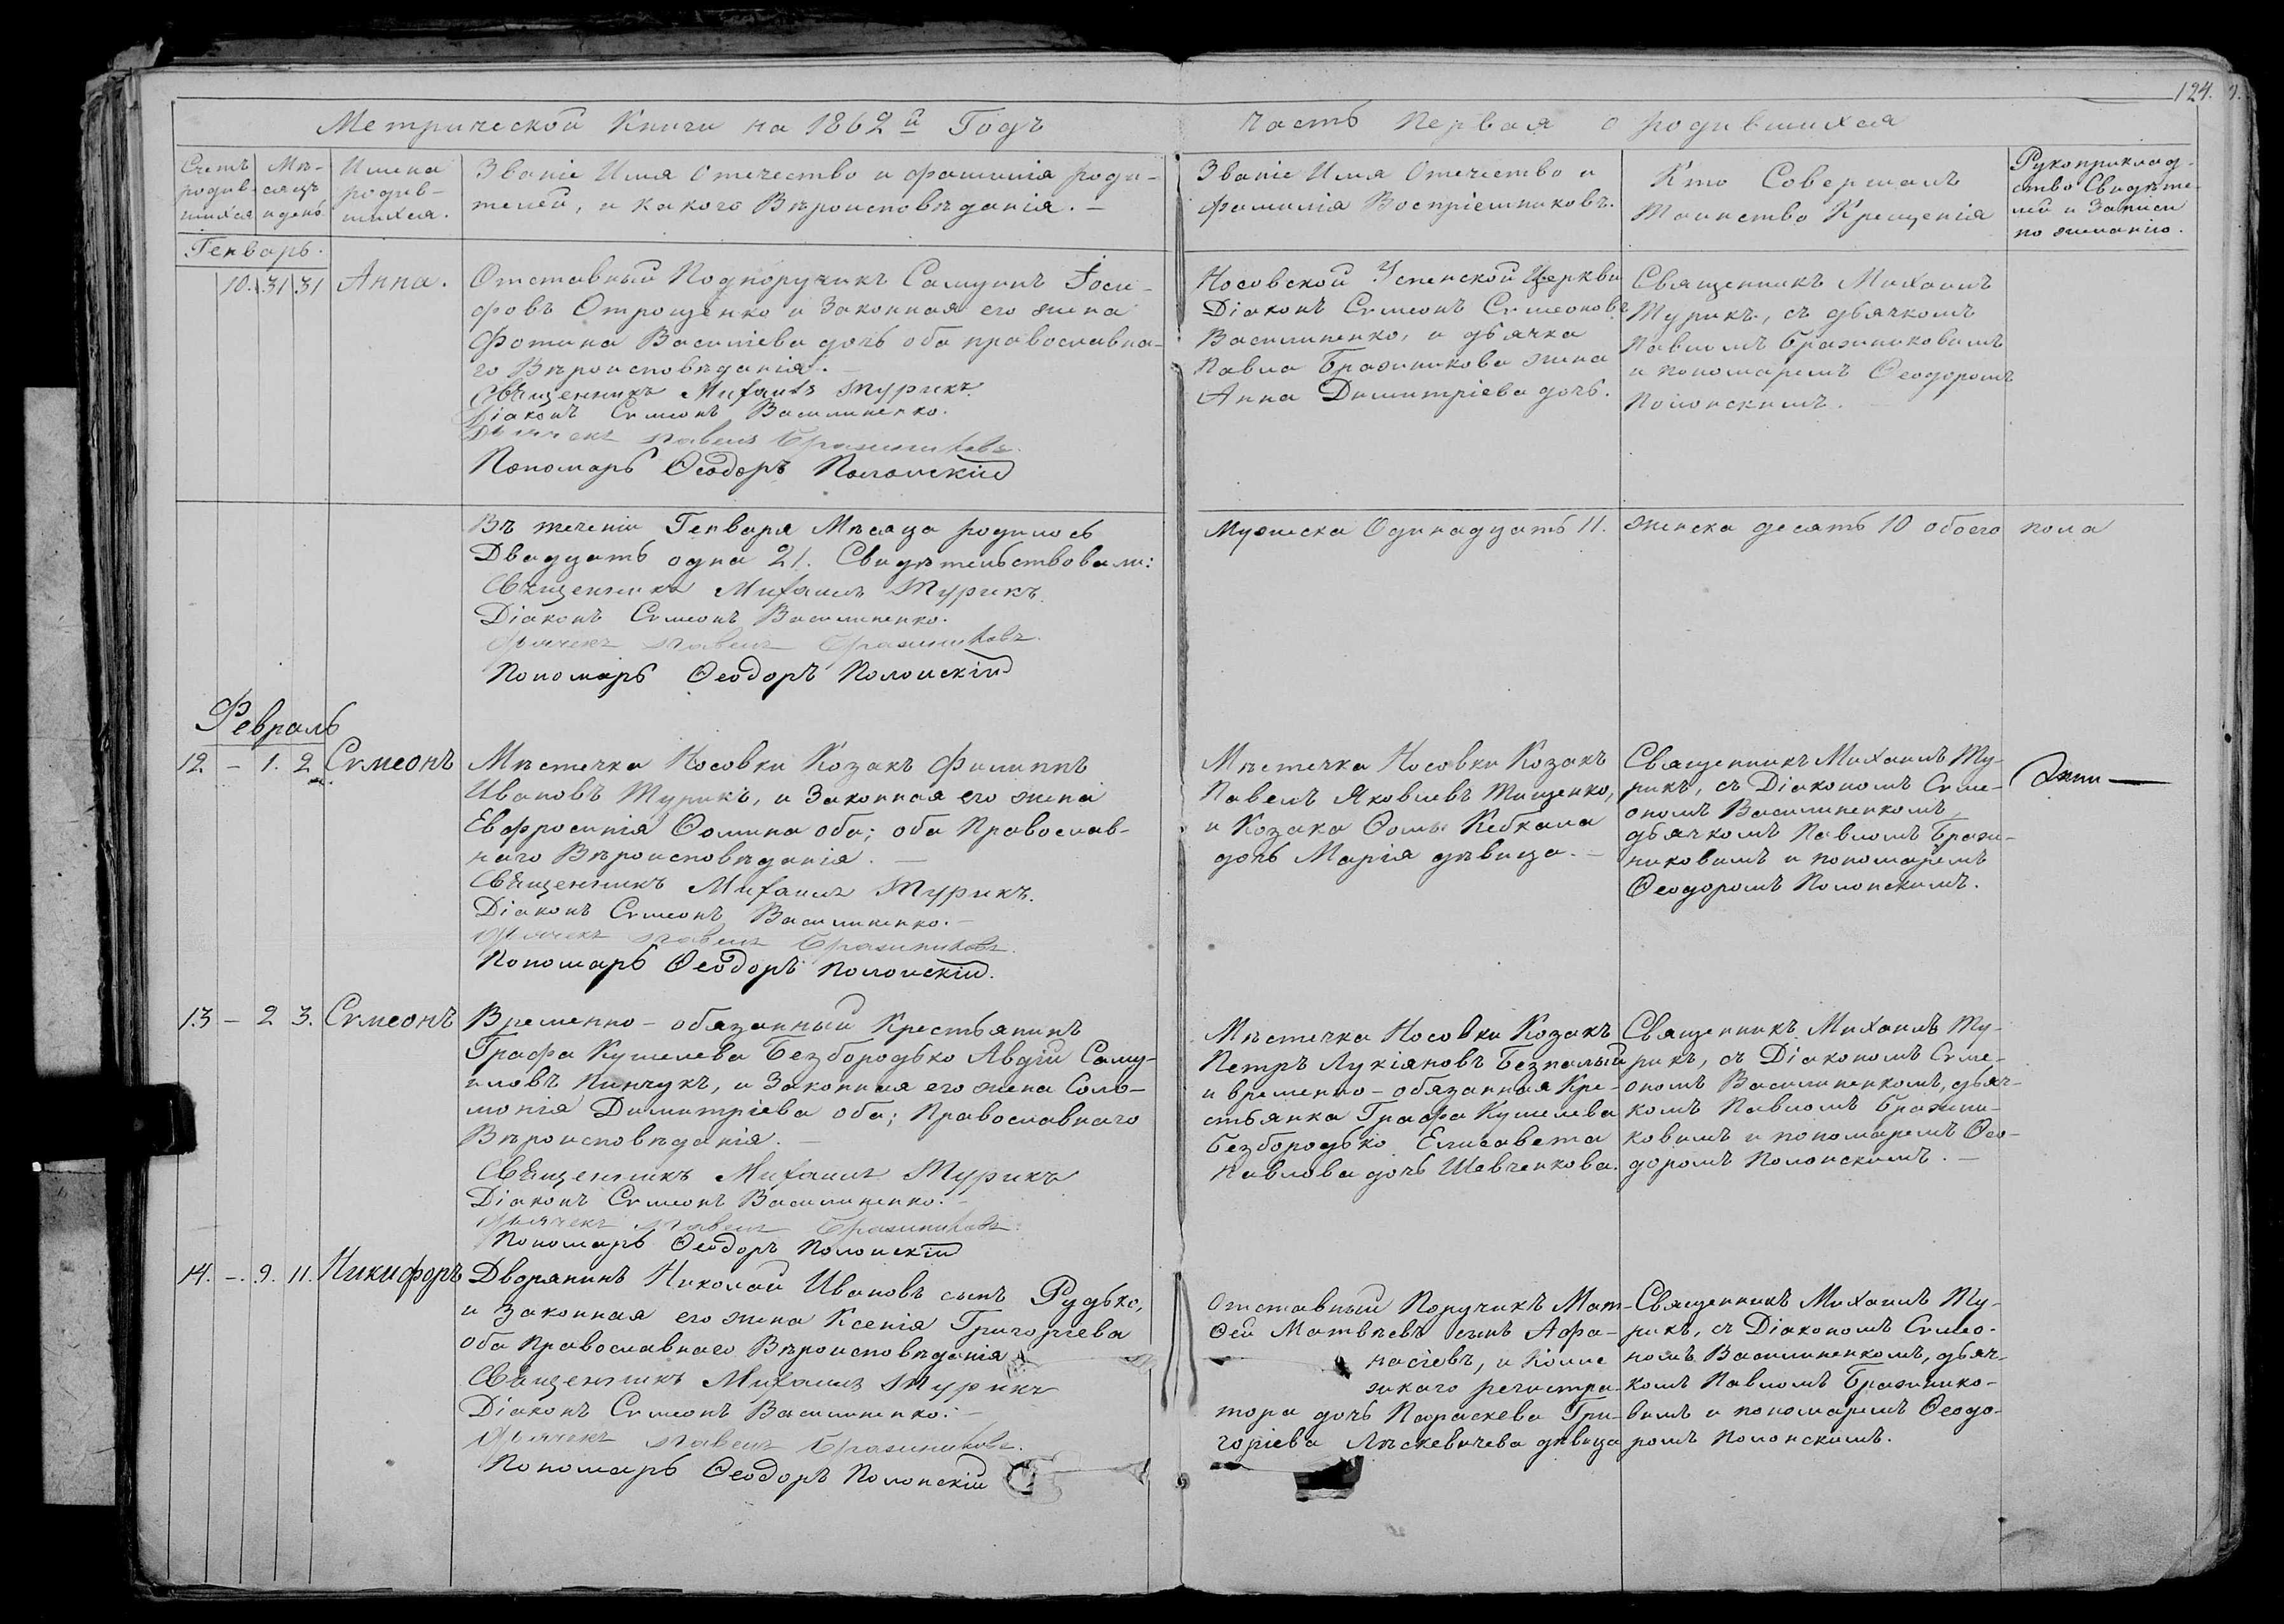 124.
Метрической Книги на 1862й Годъ
часть Первая о родившихся
Счетъ родив-шихся
Мѣ-сяцъ и день.
Имена родив-шихся.
Званіе Имя Отечество и фамилія роди-
телей, и какого Вѣроисповѣданія. —
Званіе Имя Отечество и
фамилія Воспріемниковъ.
Кто Совершалъ
Таинство Крещенія
Рукоприклад-
ство Свидѣте-
лей и Записи
по желанію.
Генварь.
10. 31 31 Анна.
Отставный Подпоручикъ Самуилъ Іоси-
фовъ Отрощенко и Законная его жена
Фотина Василіева дочь оба православна-
го Вѣроисповѣданія. —
Священникъ Михаилъ Турикъ
Діаконъ Сѵмеонъ Василиненко.
Дьячекъ Павелъ Бражниковъ.
Пономарь Ѳеодоръ Полонскій
Носовской Успенской Церкви
Діаконъ Сѵмеонъ Сѵмеоновъ
Василиненко, и дьячка
Павла Бражникова жена
Анна Димитріева дочь.
Священникъ Михаилъ
Турикъ, съ дьячкомъ
Павломъ Бражниковымъ
и пономаремъ Ѳеодоромъ
Полонскимъ.
Въ теченіи Генваря Мѣсяца родилось
Двадцать одна 21. Свидѣтельствовали:
Священникъ Михаилъ Турикъ
Діаконъ Сѵмеонъ Василиненко.
Дьячекъ Павелъ Бражниковъ.
Пономарь Ѳеодоръ Полонскій
Мужеска Одинадцать 11. женска десять 10 обоего пола
Февраль
12. — 1. 2 Сѵмеонъ
Мѣстечка Носовки Козакъ Филиппъ
Ивановъ Турикъ, и Законная его жена
Евфросинія Ѳомина оба; оба Православ-
наго Вѣроисповѣданія. —
Священникъ Михаилъ Турикъ.
Діаконъ Сѵмеонъ Василиненко. —
Дьячекъ Павелъ Бражниковъ.
Пономарь Ѳеодоръ Полонскій.
Мѣстечка Носовки Козакъ
Павелъ Яковлевъ Тищенко,
и Козака Ѳомы Кебкала
дочь Марія дѣвица. —
Священникъ Михаилъ Ту-
рикъ, съ Діакономъ Сѵме-
ономъ Василиненкомъ
дьячкомъ Павломъ Бражни-
никовымъ и пономаремъ
Ѳеодоромъ Полонскимъ.
13 — 2 3. Сѵмеонъ
Временно-обязанный Крестьянинъ
Графа Кушелева Безбородько Авдій Саму-
иловъ Пинчукъ, и Законная его жена Соло-
монія Димитріева оба; Православнаго
Вѣроисповѣданія. —
Священникъ Михаилъ Турикъ
Діаконъ Сѵмеонъ Василиненко. —
Дьячекъ Павелъ Бражниковъ.
Пономарь Ѳеодоръ Полонскій
Мѣстечка Носовки Козакъ
Петръ Лукіяновъ Безпалый
и временно-обязанная Кре-
стьянка Графа Кушелева
Безбородько Елисавета
Павлова дочь Шевченкова.
Священникъ Михаилъ Ту-
рикъ, съ Діакономъ Сѵме-
ономъ Василиненкомъ, дьяч-
комъ Павломъ Бражни-
ковымъ и пономаремъ Ѳео-
доромъ Полонскимъ. —
14. — 9. 11. Никифоръ
Дворянинъ Николай Ивановъ сынъ Рудько,
и Законная его жена Ксенія Григоріева
оба православнаго Вѣроисповѣданія
Священникъ Михаилъ Турикъ
Діаконъ Сѵмеонъ Василиненко. —
Дьячекъ Павелъ Бражниковъ.
Пономарь Ѳеодоръ Полонскій
Отставный Поручикъ Мат-
Ѳей Матвѣевъ сынъ Афа-
насіевъ, и Колле
жкаго регистра-
тора дочь Параскева Гри-
горіева Лѣскевичева дѣвица
Священникъ Михаилъ Ту-
рикъ, съ Діакономъ Сѵмео-
номъ Василиненкомъ, дьяч-
комъ Павломъ Бражнико-
вымъ и пономаремъ Ѳеодо-
ромъ Полонскимъ.